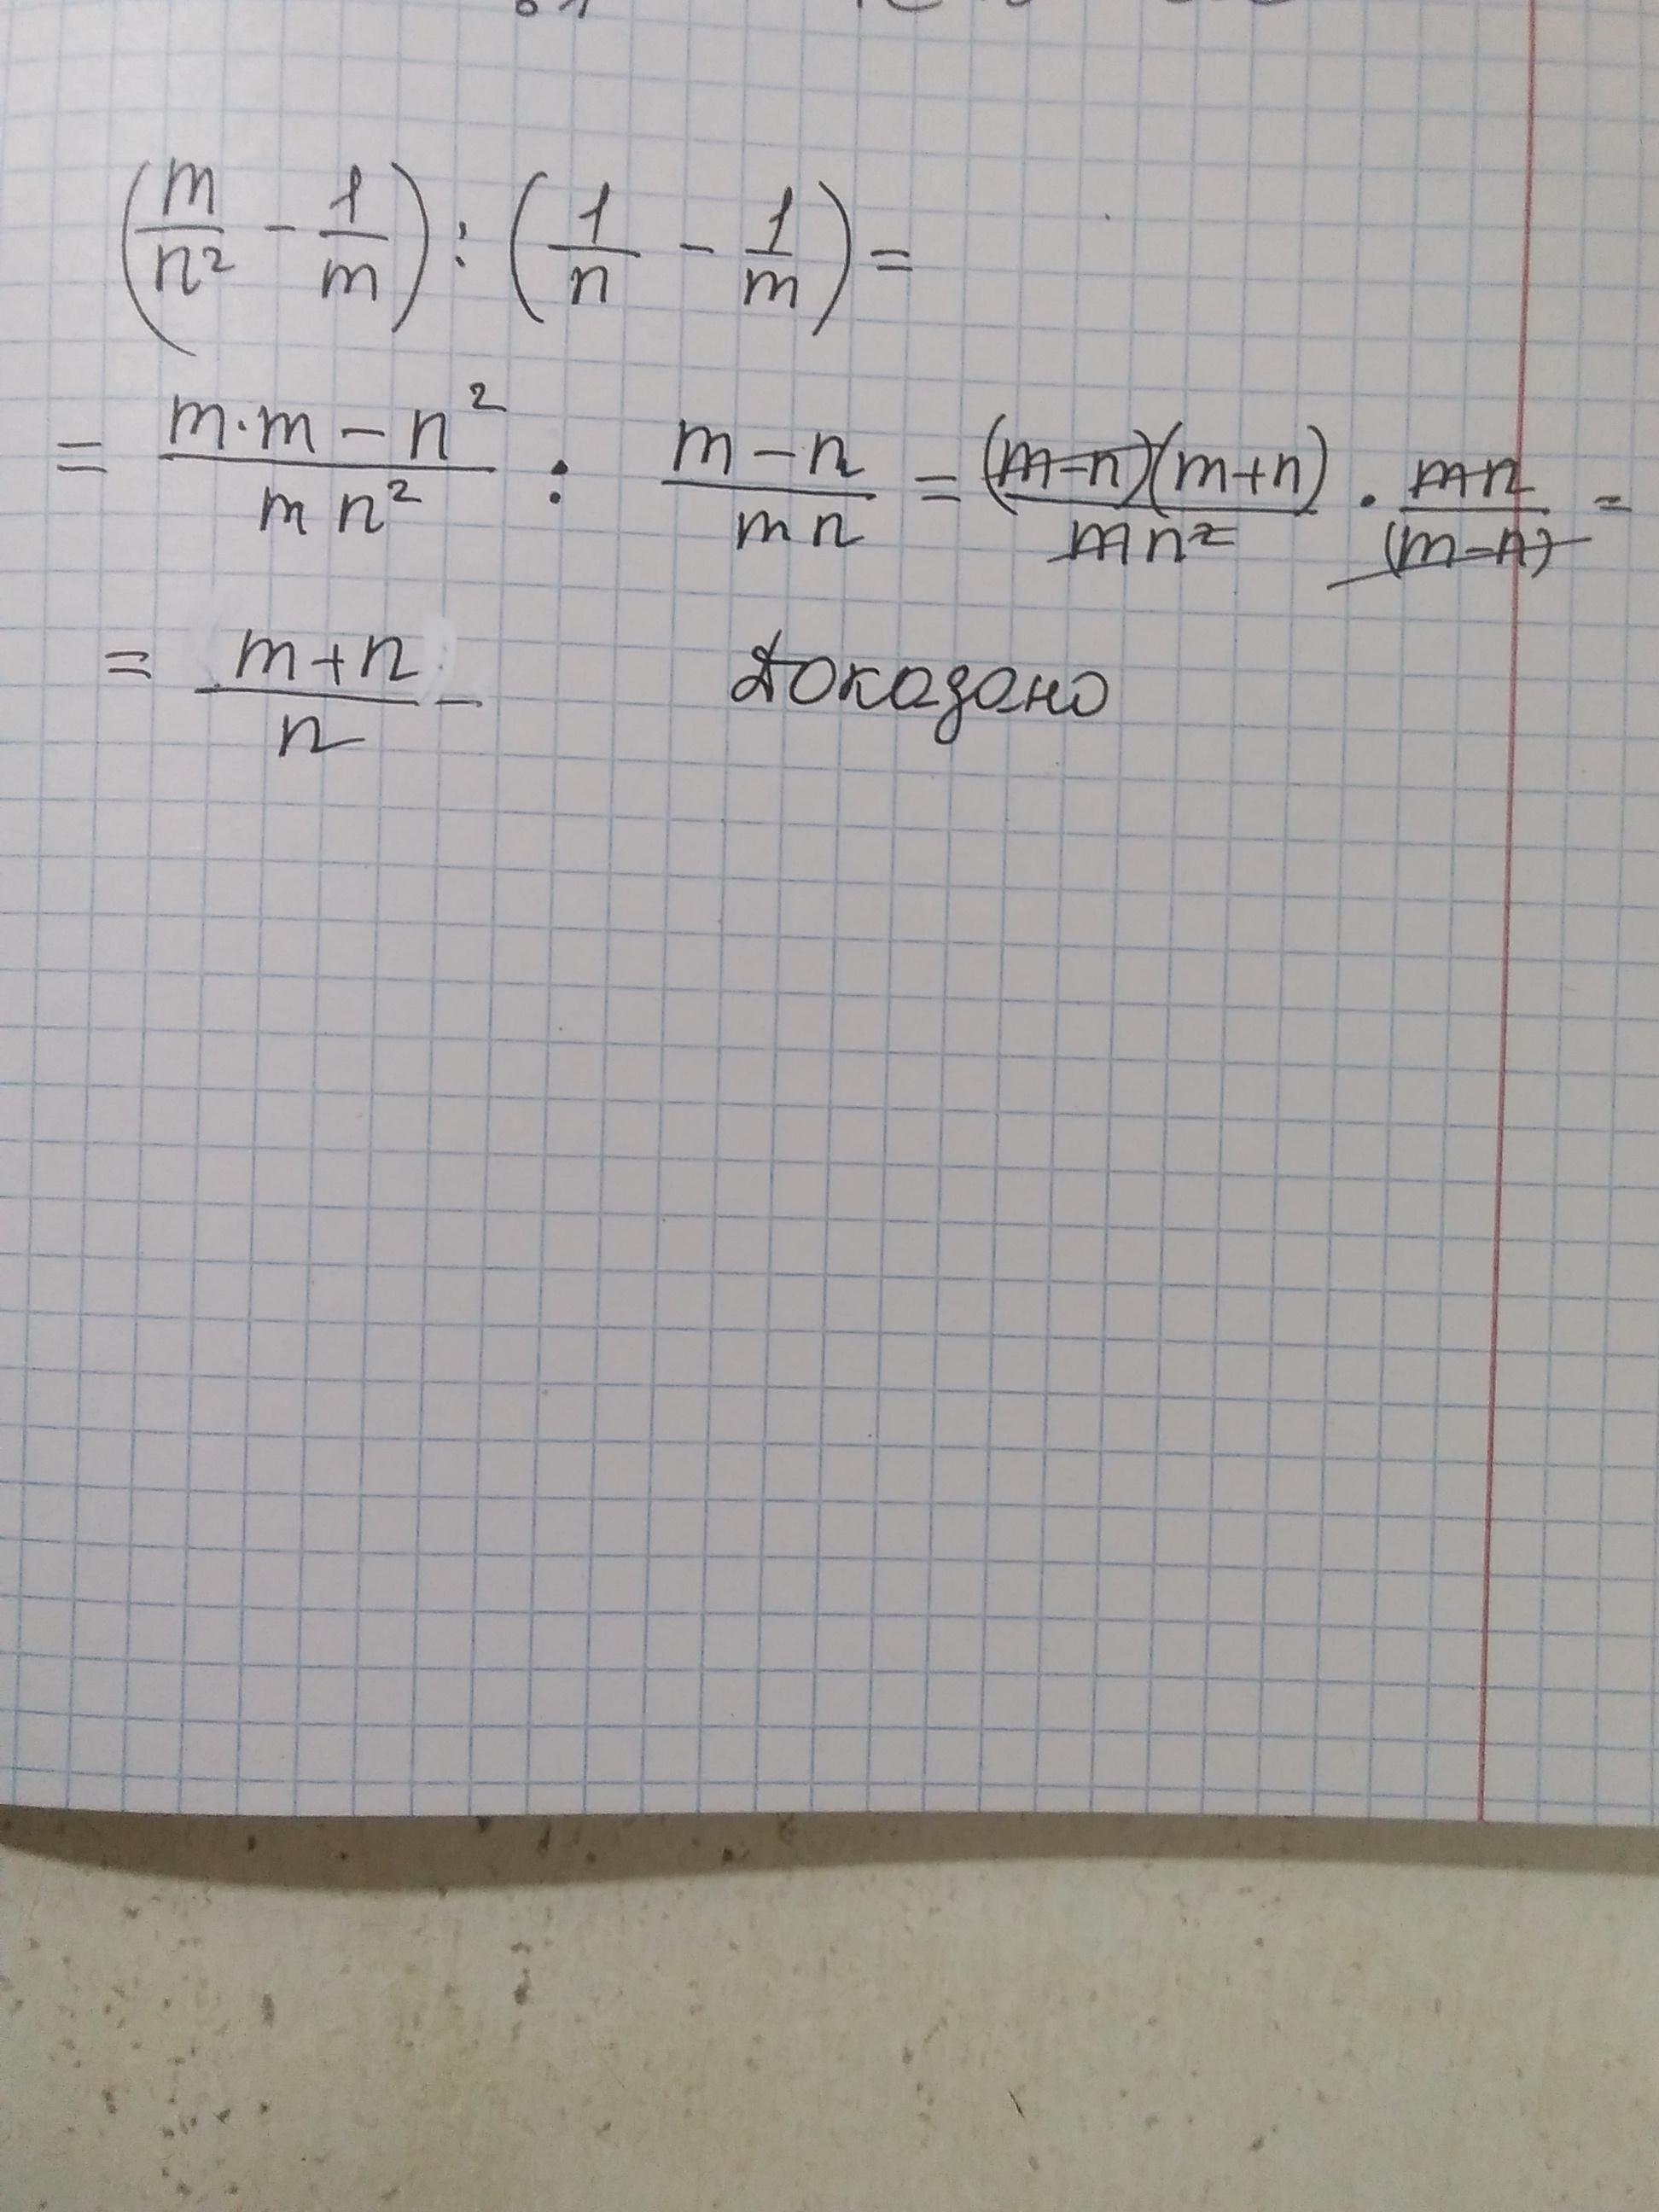 (m/n² - 1/m) : (1/n - 1/m) =
= (m·m - n²)/(mn²) : (m - n)/(mn) = (m-n)(m+n)/(mn²) · mn/(m-n) =
= (m+n)/n - Доказано